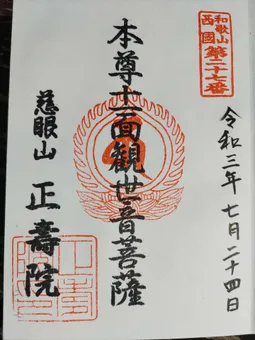 和歌山
西國
第二十七番
令和三年七月二十四日
本尊十一面観世音菩薩
慈眼山
正壽院